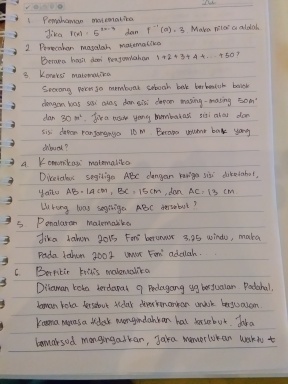 1. Pemahaman matematika
Jika f(x) = 5 dan f⁻¹(a) = 3 Maka nilai a adalah
2. Pemecahan masalah matematika
Berapa hasil dari Penjumlahan 1+2+3+4+... +50?
3. Koneksi matematika
Seorang pekerja membuat sebuah bak berbentuk balok
dengan luas sisi atas dan sisi depan masing-masing 50 m²
dan 30 m². Jika rusuk yang membatasi sisi atas dan
sisi depan Panjangnya 10 M Berapa volume bak yang
dibuat?
4. Komunikasi matematika
Diketahui segitiga ABC dengan ketiga sisi diketahui,
yaitu AB = 14 cm, BC = 15 cm, dan AC = 13 cm
Hitung luas segitiga ABC tersebut?
5. Penalaran matematika
Jika tahun 2015 Feni berumur 3.25 windu, maka
Pada tahun 2007 umur Feni adalah..
6. Berfikir kritis matematika
Ditaman kota terdapat 9 Pedagang yg berjualan Padahal,
taman kota tersebut tidak diperkenankan untuk berjualan.
Karena merasa tidak mengindahkan hal tersebut. Jaka
bermaksud mengingatkan, Jaka memerlukan waktu